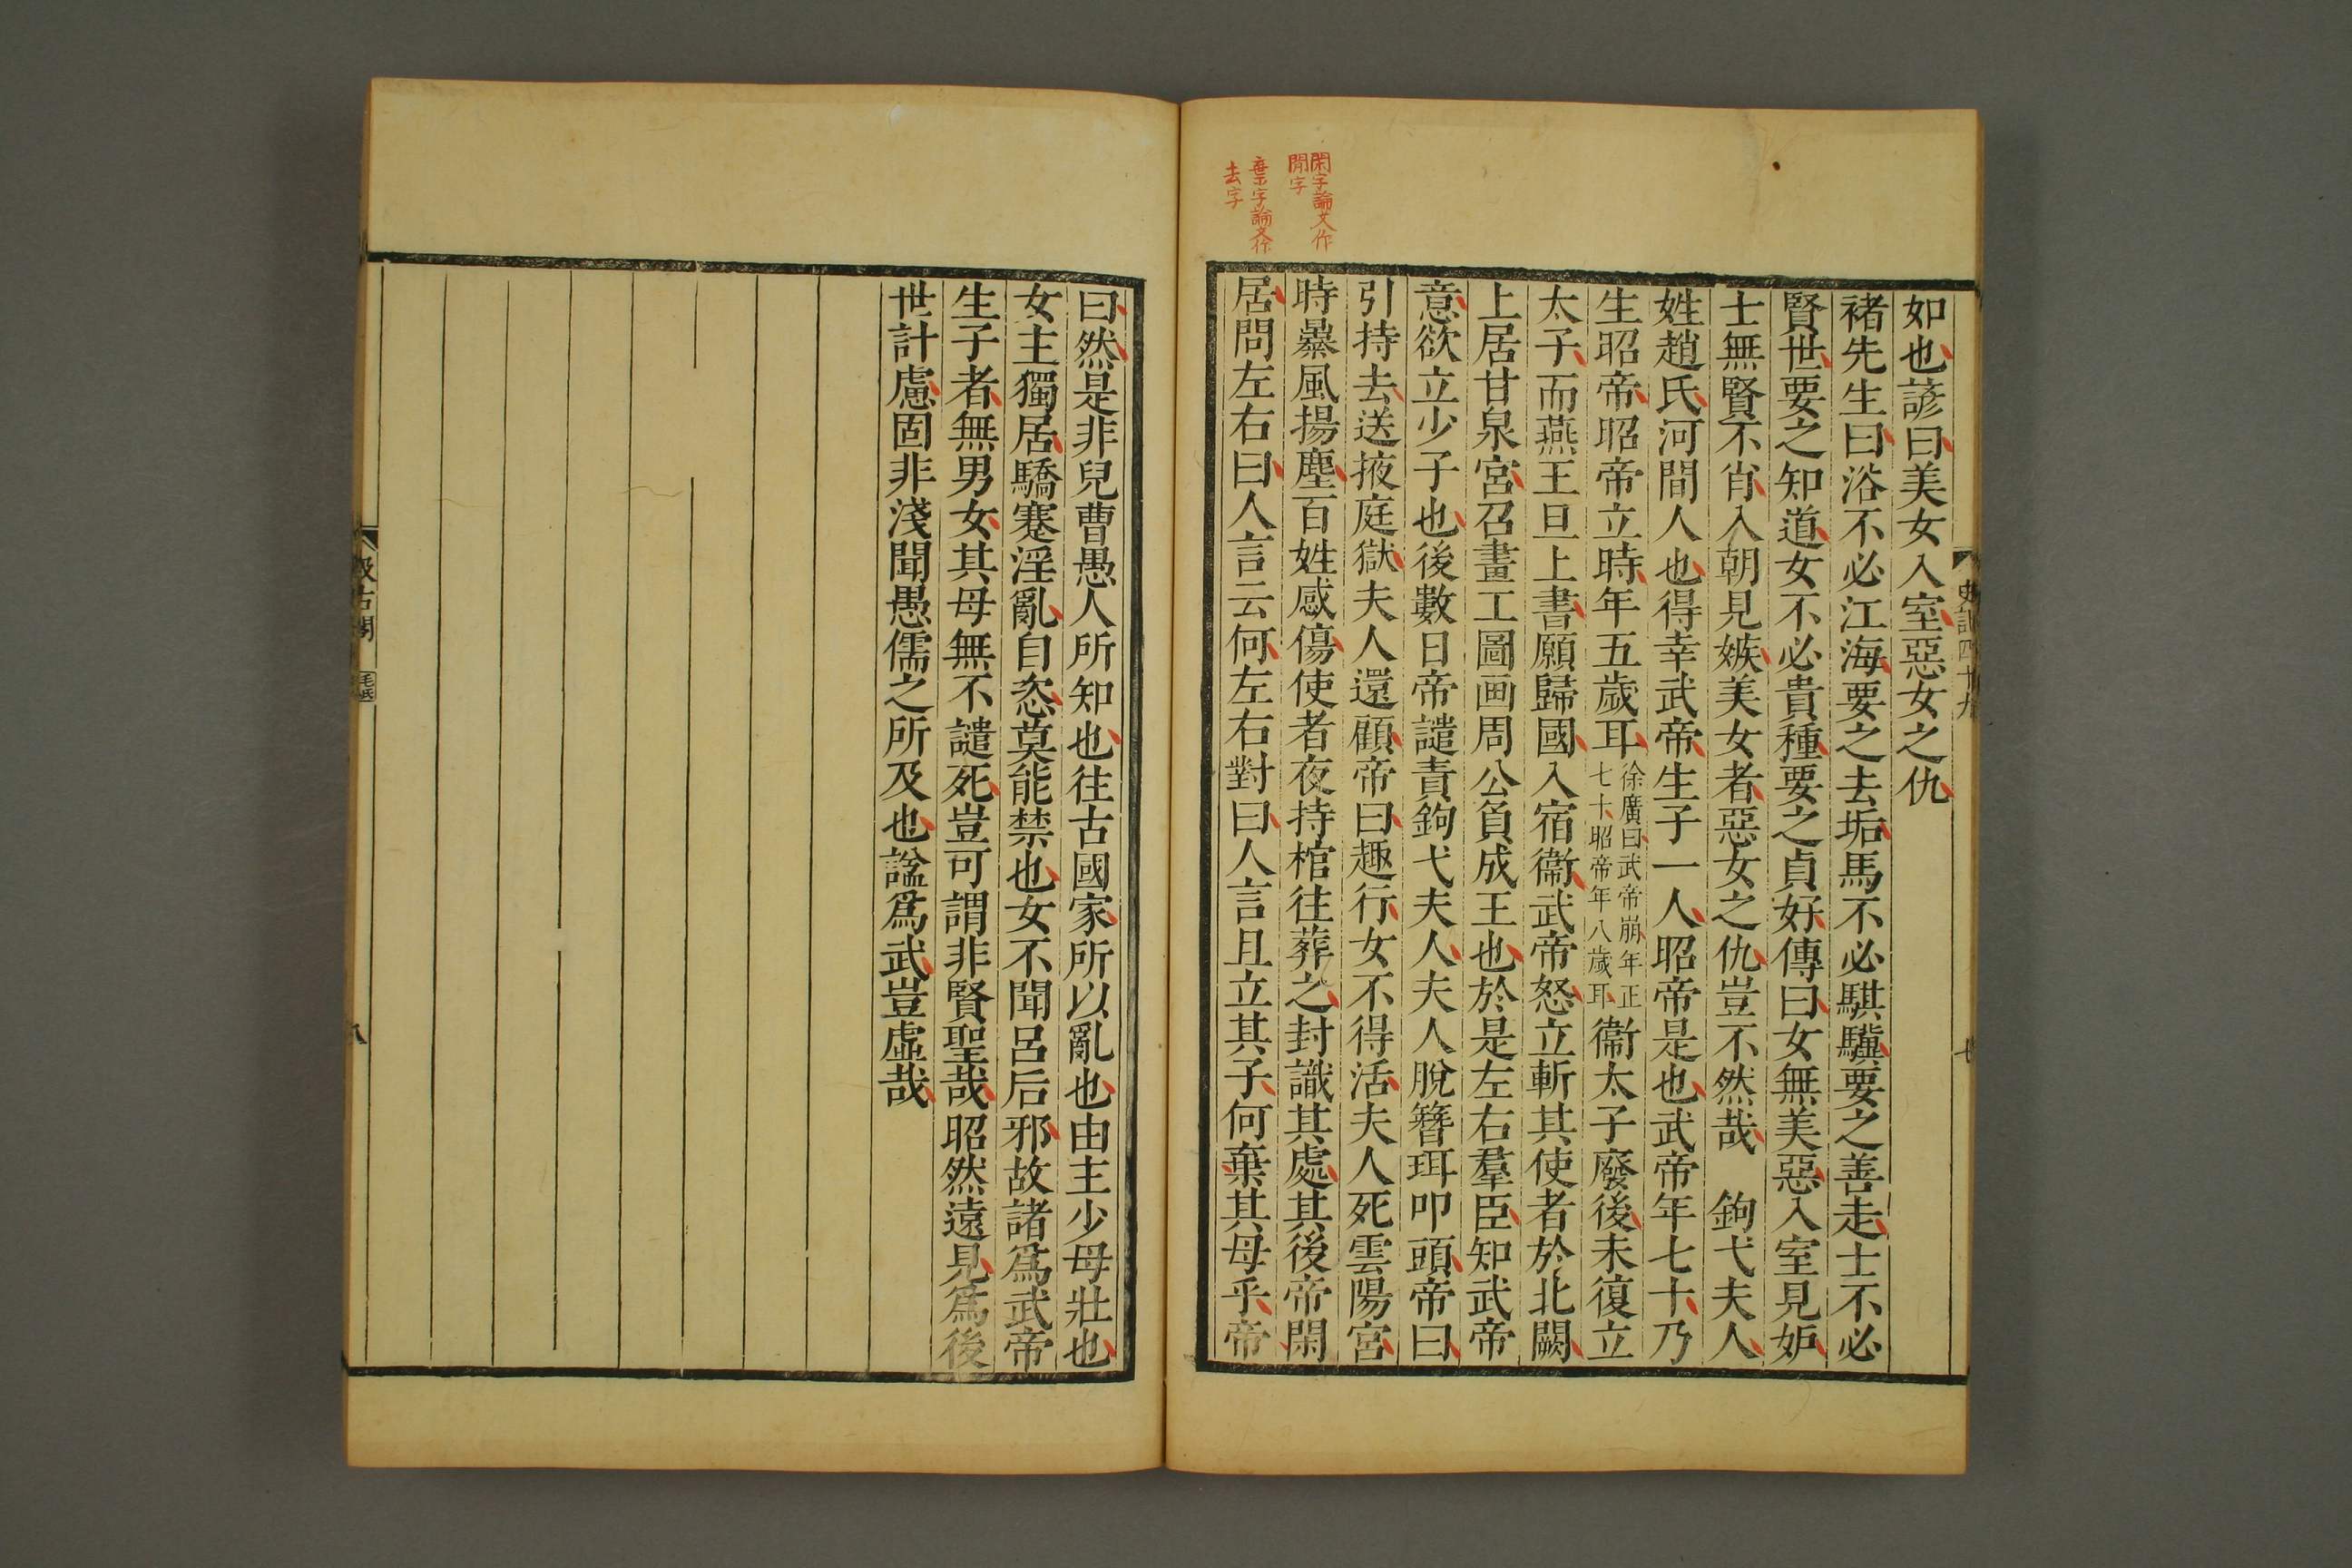 閑字論文作
閒字
棄字論文作
去字
如也諺曰美女入室惡女之仇
褚先生曰浴不必江海要之去垢馬不必騏驥要之善走士不必
賢世要之知道女不必貴種要之貞好傳曰女無美惡入室見妒
士無賢不肖入朝見嫉美女者惡女之仇豈不然哉　鉤弋夫人
姓趙氏河間人也得幸武帝生子一人昭帝是也武帝年七十乃
生昭帝昭帝立時年五歲耳徐廣曰武帝崩年正七十昭帝年八歲耳衞太子廢後未復立
太子而燕王旦上書願歸國入宿衞武帝怒立斬其使者於北闕
上居甘泉宮召畫工圖画周公負成王也於是左右羣臣知武帝
意欲立少子也後數日帝譴責鉤弋夫人夫人脫簪珥叩頭帝曰
引持去送掖庭獄夫人還顧帝曰趣行女不得活夫人死雲陽宮
時暴風揚塵百姓感傷使者夜持棺往葬之封識其處其後帝閑
居問左右曰人言云何左右對曰人言且立其子何棄其母乎帝
史記四十九
七
曰然是非兒曹愚人所知也往古國家所以亂也由主少母壯也
女主獨居驕蹇淫亂自恣莫能禁也女不聞呂后邪故諸爲武帝
生子者無男女其母無不譴死豈可謂非賢聖哉昭然遠見爲後
世計慮固非淺聞愚儒之所及也諡爲武豈虛哉
汲古閣
毛氏
八